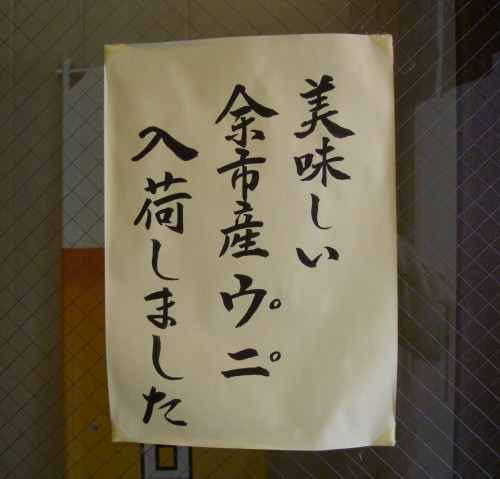 美味しい
余市産ウ゜ニ゜
入荷しました